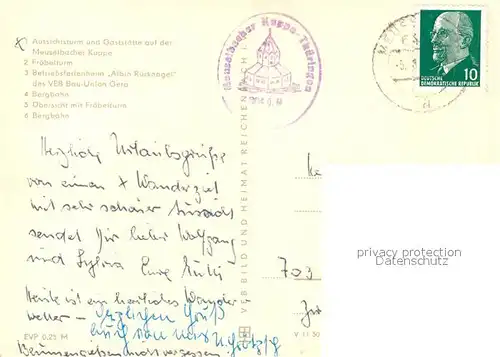 Aussichtsturm und Gaststätte auf der
Meuselbacher Kuppe
2 Fröbelturm
3 Betriebsferienheim „Albin Rüsenagel"
des VEB Bau-Union Gera
4 Bergbahn
5 Übersicht mit Fröbelturm
6 Bergbahn
Meuselbacher Kuppe-Thüringen
DEUTSCHE
DEMOKRATISCHE REPUBLIK
10
VEB BILD UND HEIMAT REICHENBACH
Herzliche Urlaubsgrüße
von einem x Wanderziel
mit sehr schöner Aussicht
sendet Dir lieber Wolfgang
und Sylvia Eure
Heute ist ein herrliches Wander
wetter – Herzlichen Gruß
auch von
noch vergessen
703
privacy protection
Datenschutz
EVP 0,25 M
V 11 50